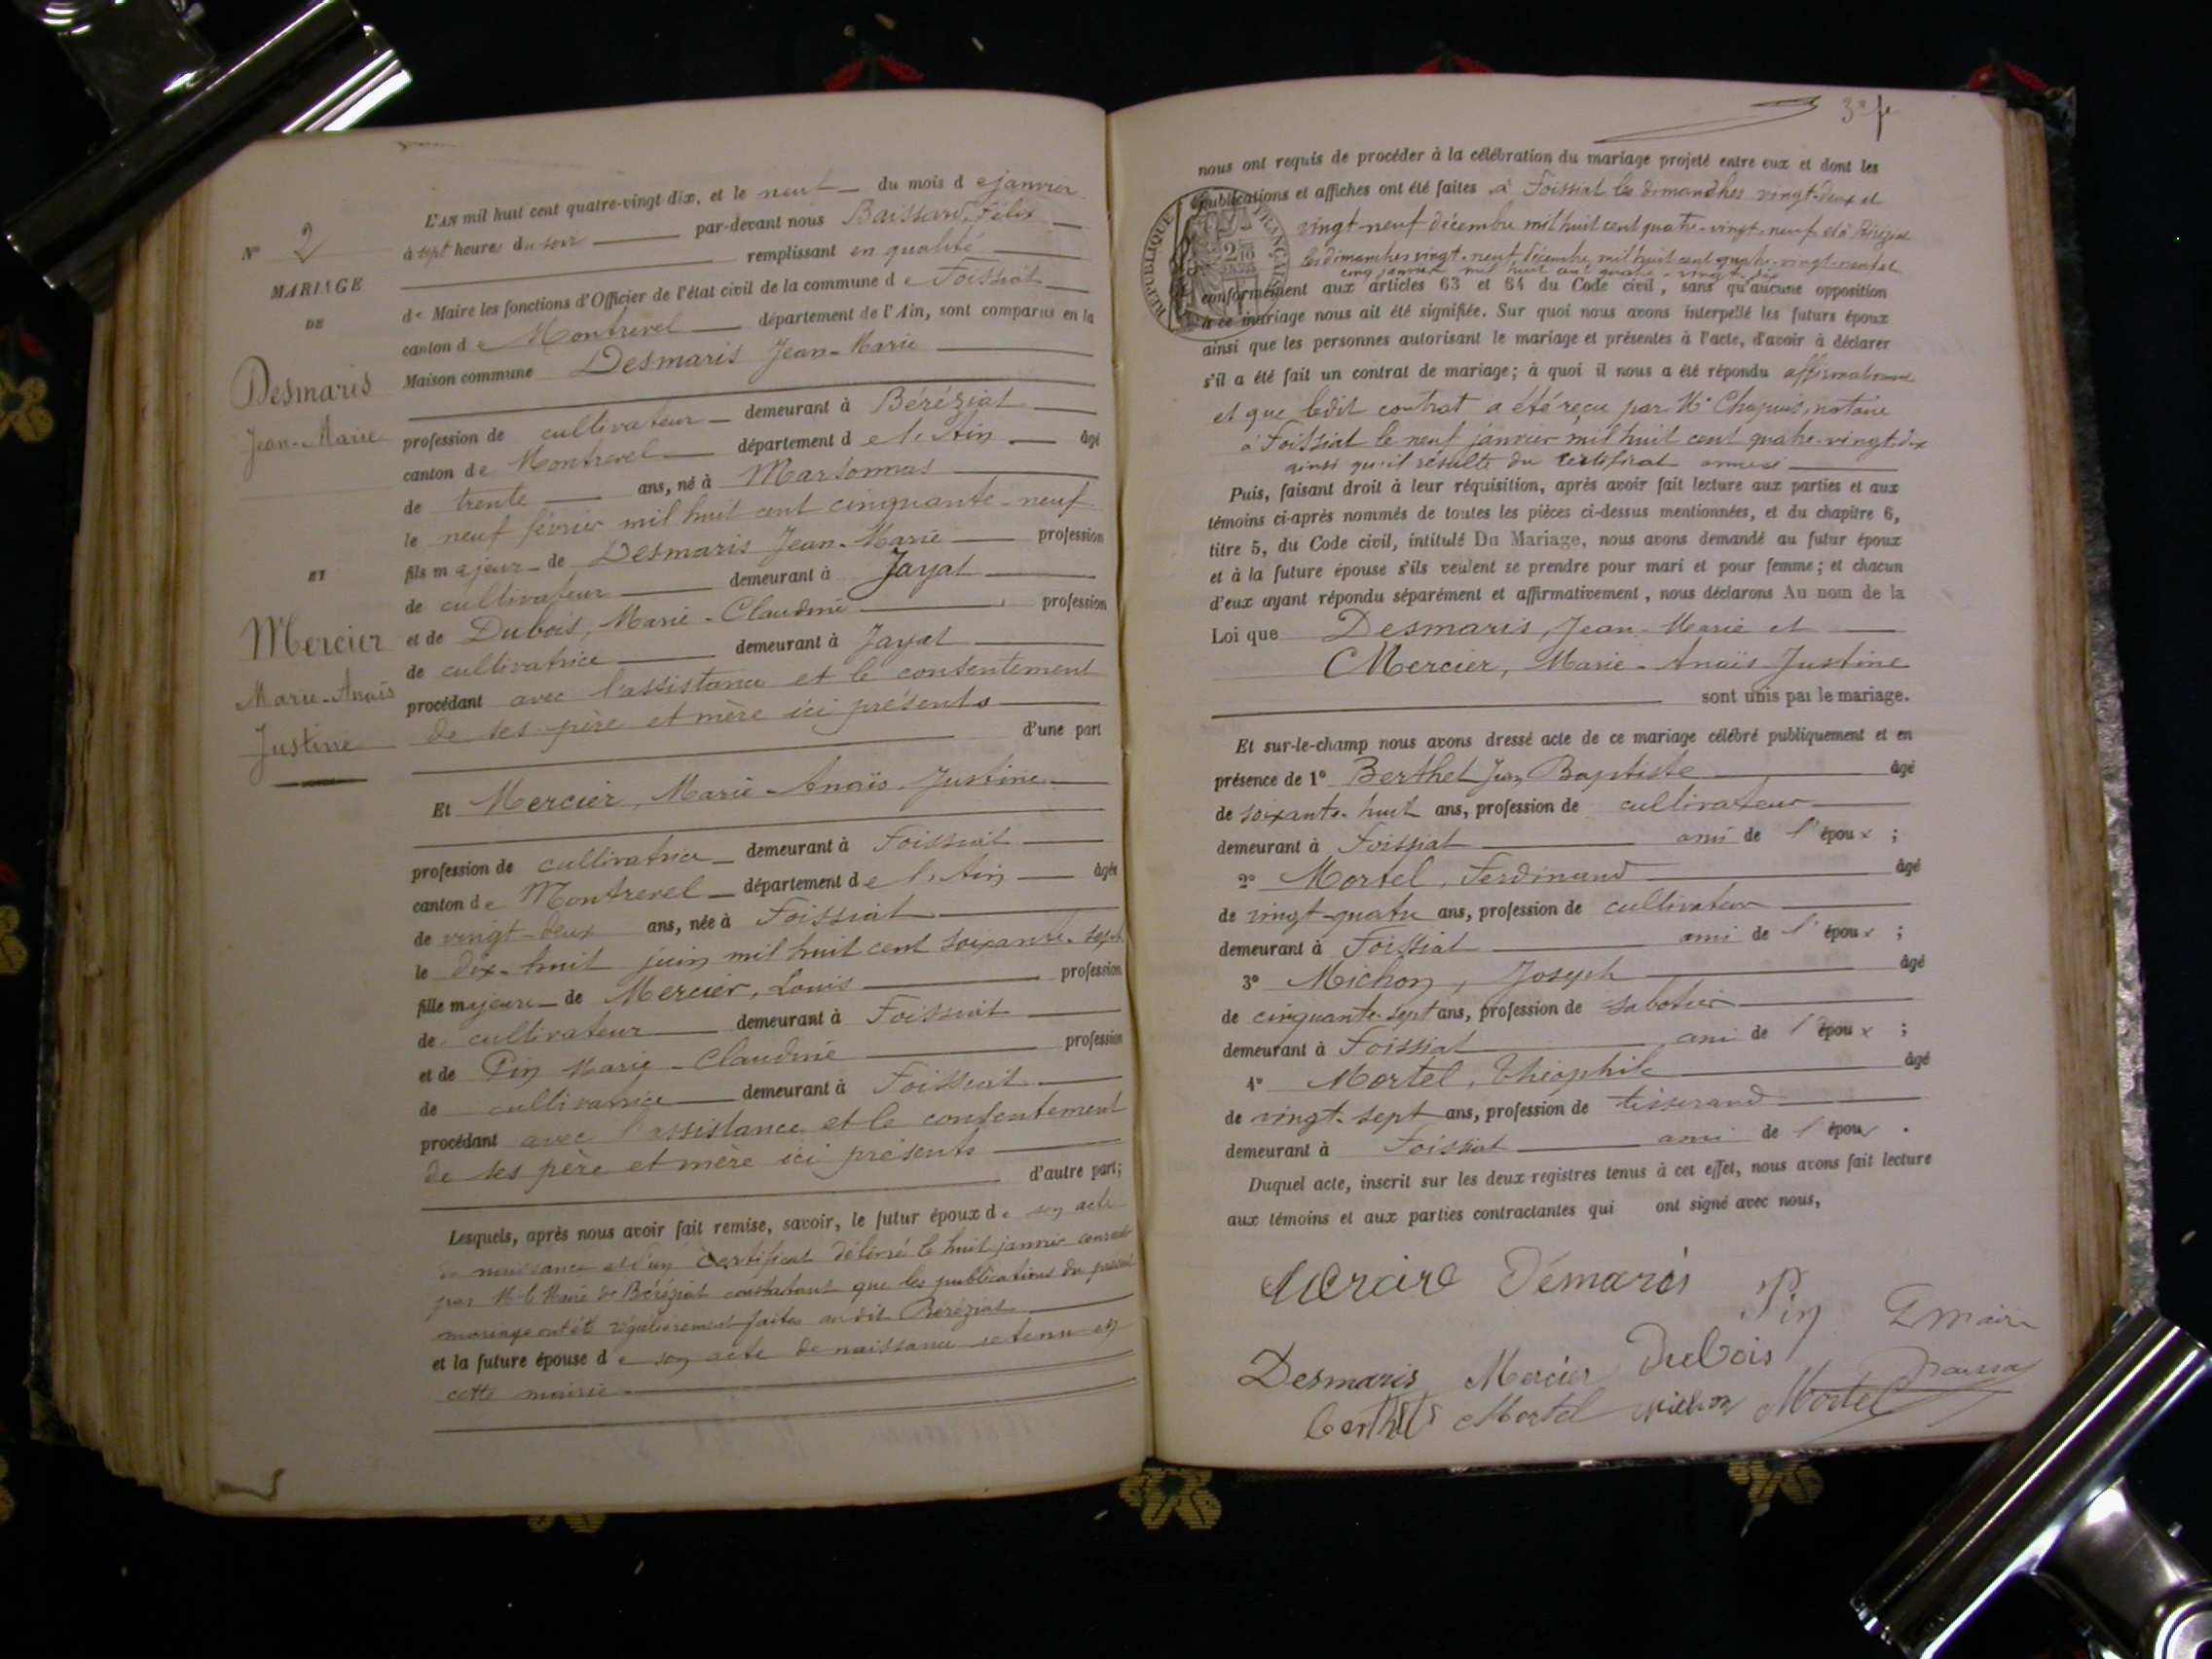 L'AN mil huit cent quatre-vingt-dix, et le neuf du mois de janvier
à sept heures du soir par-devant nous Baissard, Félix
remplissant en qualité
de Maire les fonctions d'Officier de l'état civil de la commune de Foissiat
canton de Montrevel département de l'Ain, sont comparus en la
Maison commune Desmaris Jean-Marie
profession de cultivateur demeurant à Béréziat
canton de Montrevel département de l'Ain âgé
de trente ans, né à Marsonnas
le neuf février mil huit cent cinquante-neuf
fils majeur de Desmaris Jean-Marie profession
de cultivateur demeurant à Jayat
et de Dubois, Marie-Claudine profession
de cultivatrice demeurant à Jayat
procédant avec l'assistance et le consentement
de ses père et mère ici présents
d'une part
Et Mercier, Marie-Anaïs-Justine
profession de cultivatrice demeurant à Foissiat
canton de Montrevel département de l'Ain âgée
de vingt-deux ans, née à Foissiat
le dix-huit juin mil huit cent soixante-sept
fille majeure de Mercier, Louis profession
de cultivateur demeurant à Foissiat
et de Pin Marie-Claudine profession
de cultivatrice demeurant à Foissiat
procédant avec l'assistance et le consentement
de ses père et mère ici présents
d'autre part;
Lesquels, après nous avoir fait remise, savoir, le futur époux de son acte
de naissance et d'un certificat délivré le huit janvier courant
par M. le Maire de Béréziat constatant que les publications du présent
mariage ont été régulièrement faites audit Béréziat
et la future épouse de son acte de naissance retenu en
cette mairie
N° 2
MARIAGE
DE
Desmaris
Jean-Marie
ET
Mercier
Marie-Anaïs
Justine
3e f
nous ont requis de procéder à la célébration du mariage projeté entre eux et dont les
publications et affiches ont été faites à Foissiat les dimanches vingt-deux et
vingt-neuf décembre mil huit cent quatre-vingt-neuf et à Béréziat
les dimanches vingt-neuf décembre mil huit cent quatre-vingt-neuf et
cinq janvier mil huit cent quatre-vingt-dix
conformément aux articles 63 et 64 du Code civil, sans qu'aucune opposition
à ce mariage nous ait été signifiée. Sur quoi nous avons interpellé les futurs époux
ainsi que les personnes autorisant le mariage et présentes à l'acte, d'avoir à déclarer
s'il a été fait un contrat de mariage; à quoi il nous a été répondu affirmativement
et que ledit contrat a été reçu par Me Chapuis, notaire
à Foissiat le neuf janvier mil huit cent quatre-vingt-dix
ainsi qu'il résulte du certificat annexé
Puis, faisant droit à leur réquisition, après avoir fait lecture aux parties et aux
témoins ci-après nommés de toutes les pièces ci-dessus mentionnées, et du chapitre 6,
titre 5, du Code civil, intitulé Du Mariage, nous avons demandé au futur époux
et à la future épouse s'ils veulent se prendre pour mari et pour femme; et chacun
d'eux ayant répondu séparément et affirmativement, nous déclarons Au nom de la
Loi que Desmaris, Jean-Marie et
Mercier, Marie-Anaïs-Justine
sont unis par le mariage.
Et sur-le-champ nous avons dressé acte de ce mariage célébré publiquement et en
présence de 1° Berthet Jean Baptiste âgé
de soixante-huit ans, profession de cultivateur
demeurant à Foissiat ami de l'époux ;
2° Mortel, Ferdinand âgé
de vingt-quatre ans, profession de cultivateur
demeurant à Foissiat ami de l'époux ;
3° Michon, Joseph âgé
de cinquante-sept ans, profession de sabotier
demeurant à Foissiat ami de l'époux ;
4° Mortel, Théophile âgé
de vingt-sept ans, profession de tisserand
demeurant à Foissiat ami de l'époux .
Duquel acte, inscrit sur les deux registres tenus à cet effet, nous avons fait lecture
aux témoins et aux parties contractantes qui ont signé avec nous,
Démaris
Pin
Desmaris Mercier Dubois
Mortel Mortel
RÉPUBLIQUE FRANÇAISE